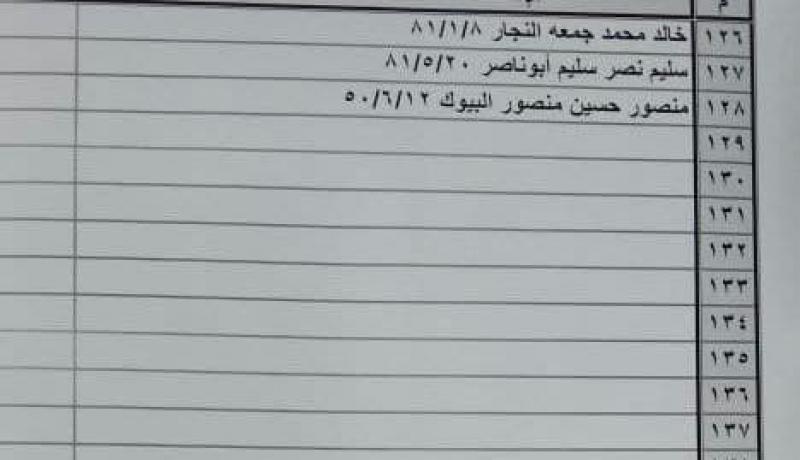 م
١٢٦ خالد محمد جمعه النجار ٨١/١/٨
١٢٧ سليم نصر سليم أبوناصر ٨١/٥/٢٠
١٢٨ منصور حسين منصور البيوك ٥٠/٦/١٢
١٢٩
١٣٠
١٣١
١٣٢
١٣٣
١٣٤
١٣٥
١٣٦
١٣٧